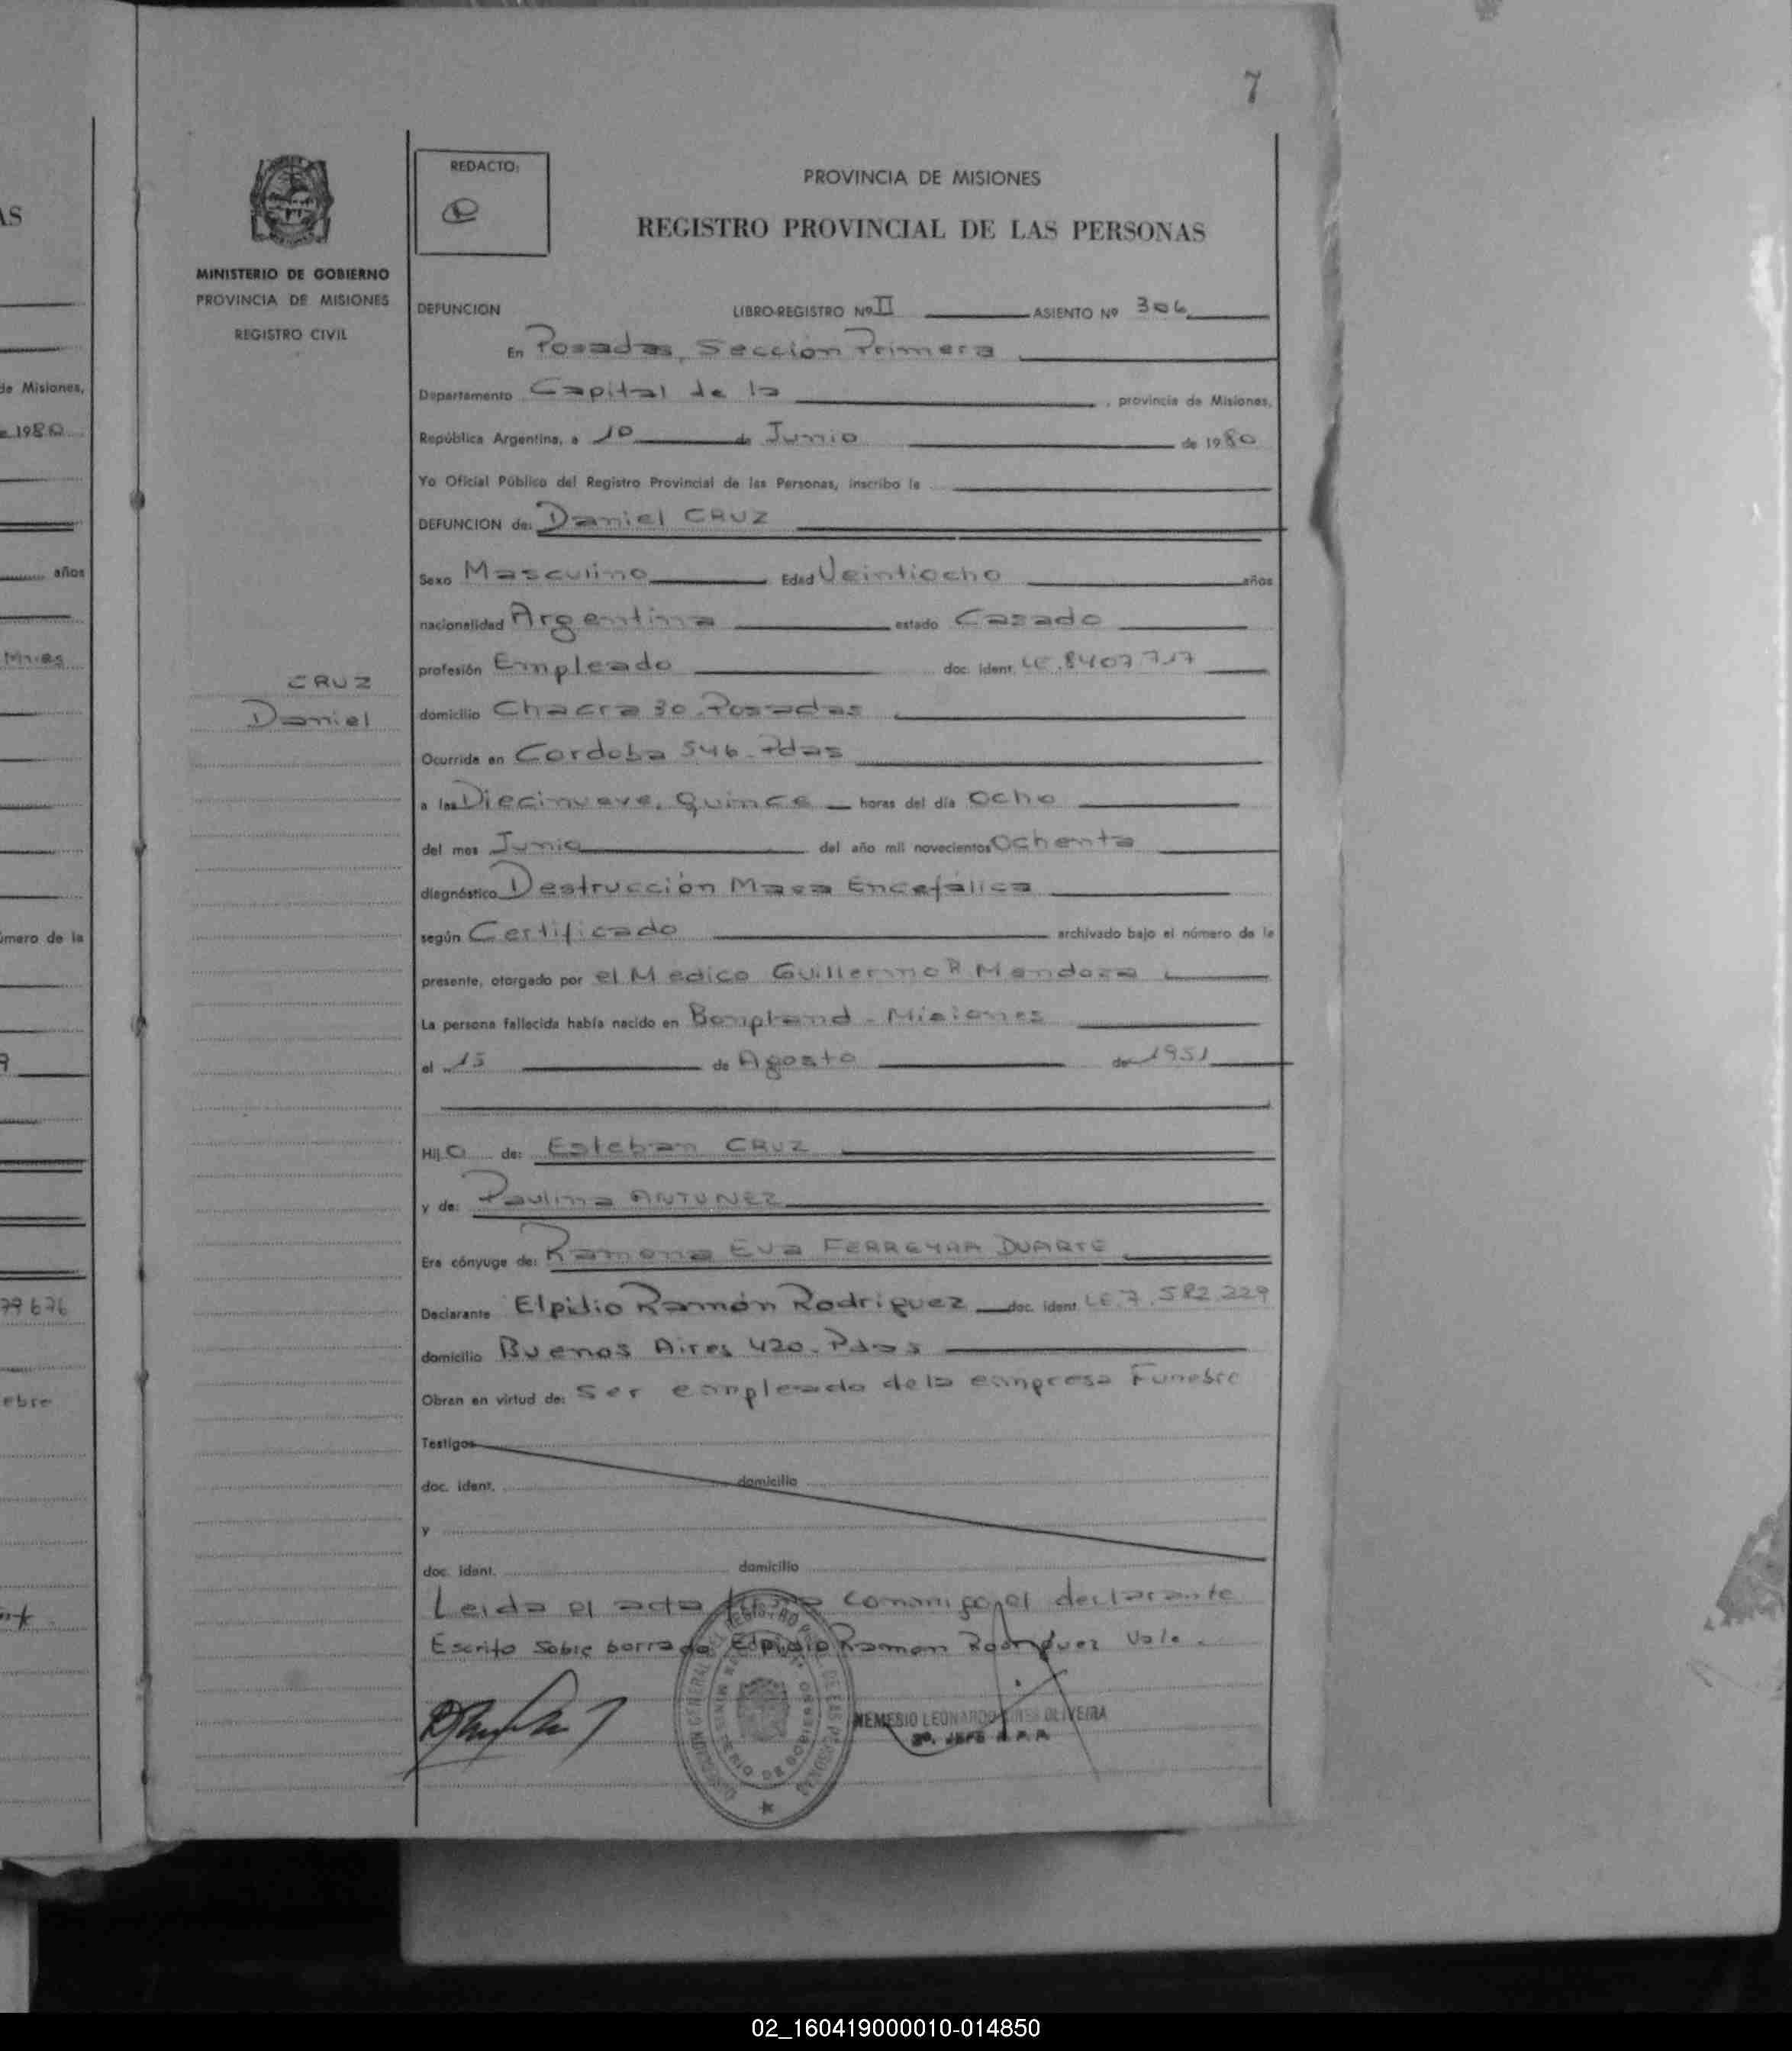 7
REDACTO:
PROVINCIA DE MISIONES
REGISTRO PROVINCIAL DE LAS PERSONAS
MINISTERIO DE GOBIERNO
PROVINCIA DE MISIONES
REGISTRO CIVIL
CRUZ
Daniel
DEFUNCION LIBRO-REGISTRO Nº II ASIENTO Nº 306
En Posadas, Sección Primera
Departamento Capital de la , provincia de Misiones,
República Argentina, a 10 de Junio de 1980
Yo Oficial Público del Registro Provincial de las Personas, inscribo la
DEFUNCION de: Daniel CRUZ
Sexo Masculino Edad Veintiocho años
nacionalidad Argentina estado Casado
profesión Empleado doc. ident. LE. 8407717
domicilio Chacra 30. Posadas
Ocurrida en Cordoba 546 - Pdas
a las Diecinueve, Quince horas del día Ocho
del mes Junio del año mil novecientos Ochenta
diagnóstico Destrucción Masa Encefálica
según Certificado archivado bajo el número de la
presente, otorgado por el Medico Guillermo R Mendoza
La persona fallecida había nacido en Bonpland - Misiones
el 15 de Agosto de 1951
Hijo de: Esteban CRUZ
y de: Paulina ANTUNEZ
Era cónyuge de: Ramona Eva FERREYRA DUARTE
Declarante Elpidio Ramón Rodriguez doc. ident. LE. 7.582.229
domicilio Buenos Aires 420. Pdas
Obran en virtud de: Ser empleado de la empresa Funebre
Testigos
doc. ident. domicilio
y
doc. ident. domicilio
Leida el acta firma conmigo el declarante
Escrito sobre borrado Elpidio Ramon Rodriguez Vale.
NEMESIO LEONARDO OLIVEIRA
JEFE R.P.P.
AS
de Misiones,
1980
años
Mnes
número de la
9
79676
ebre
02_160419000010-014850